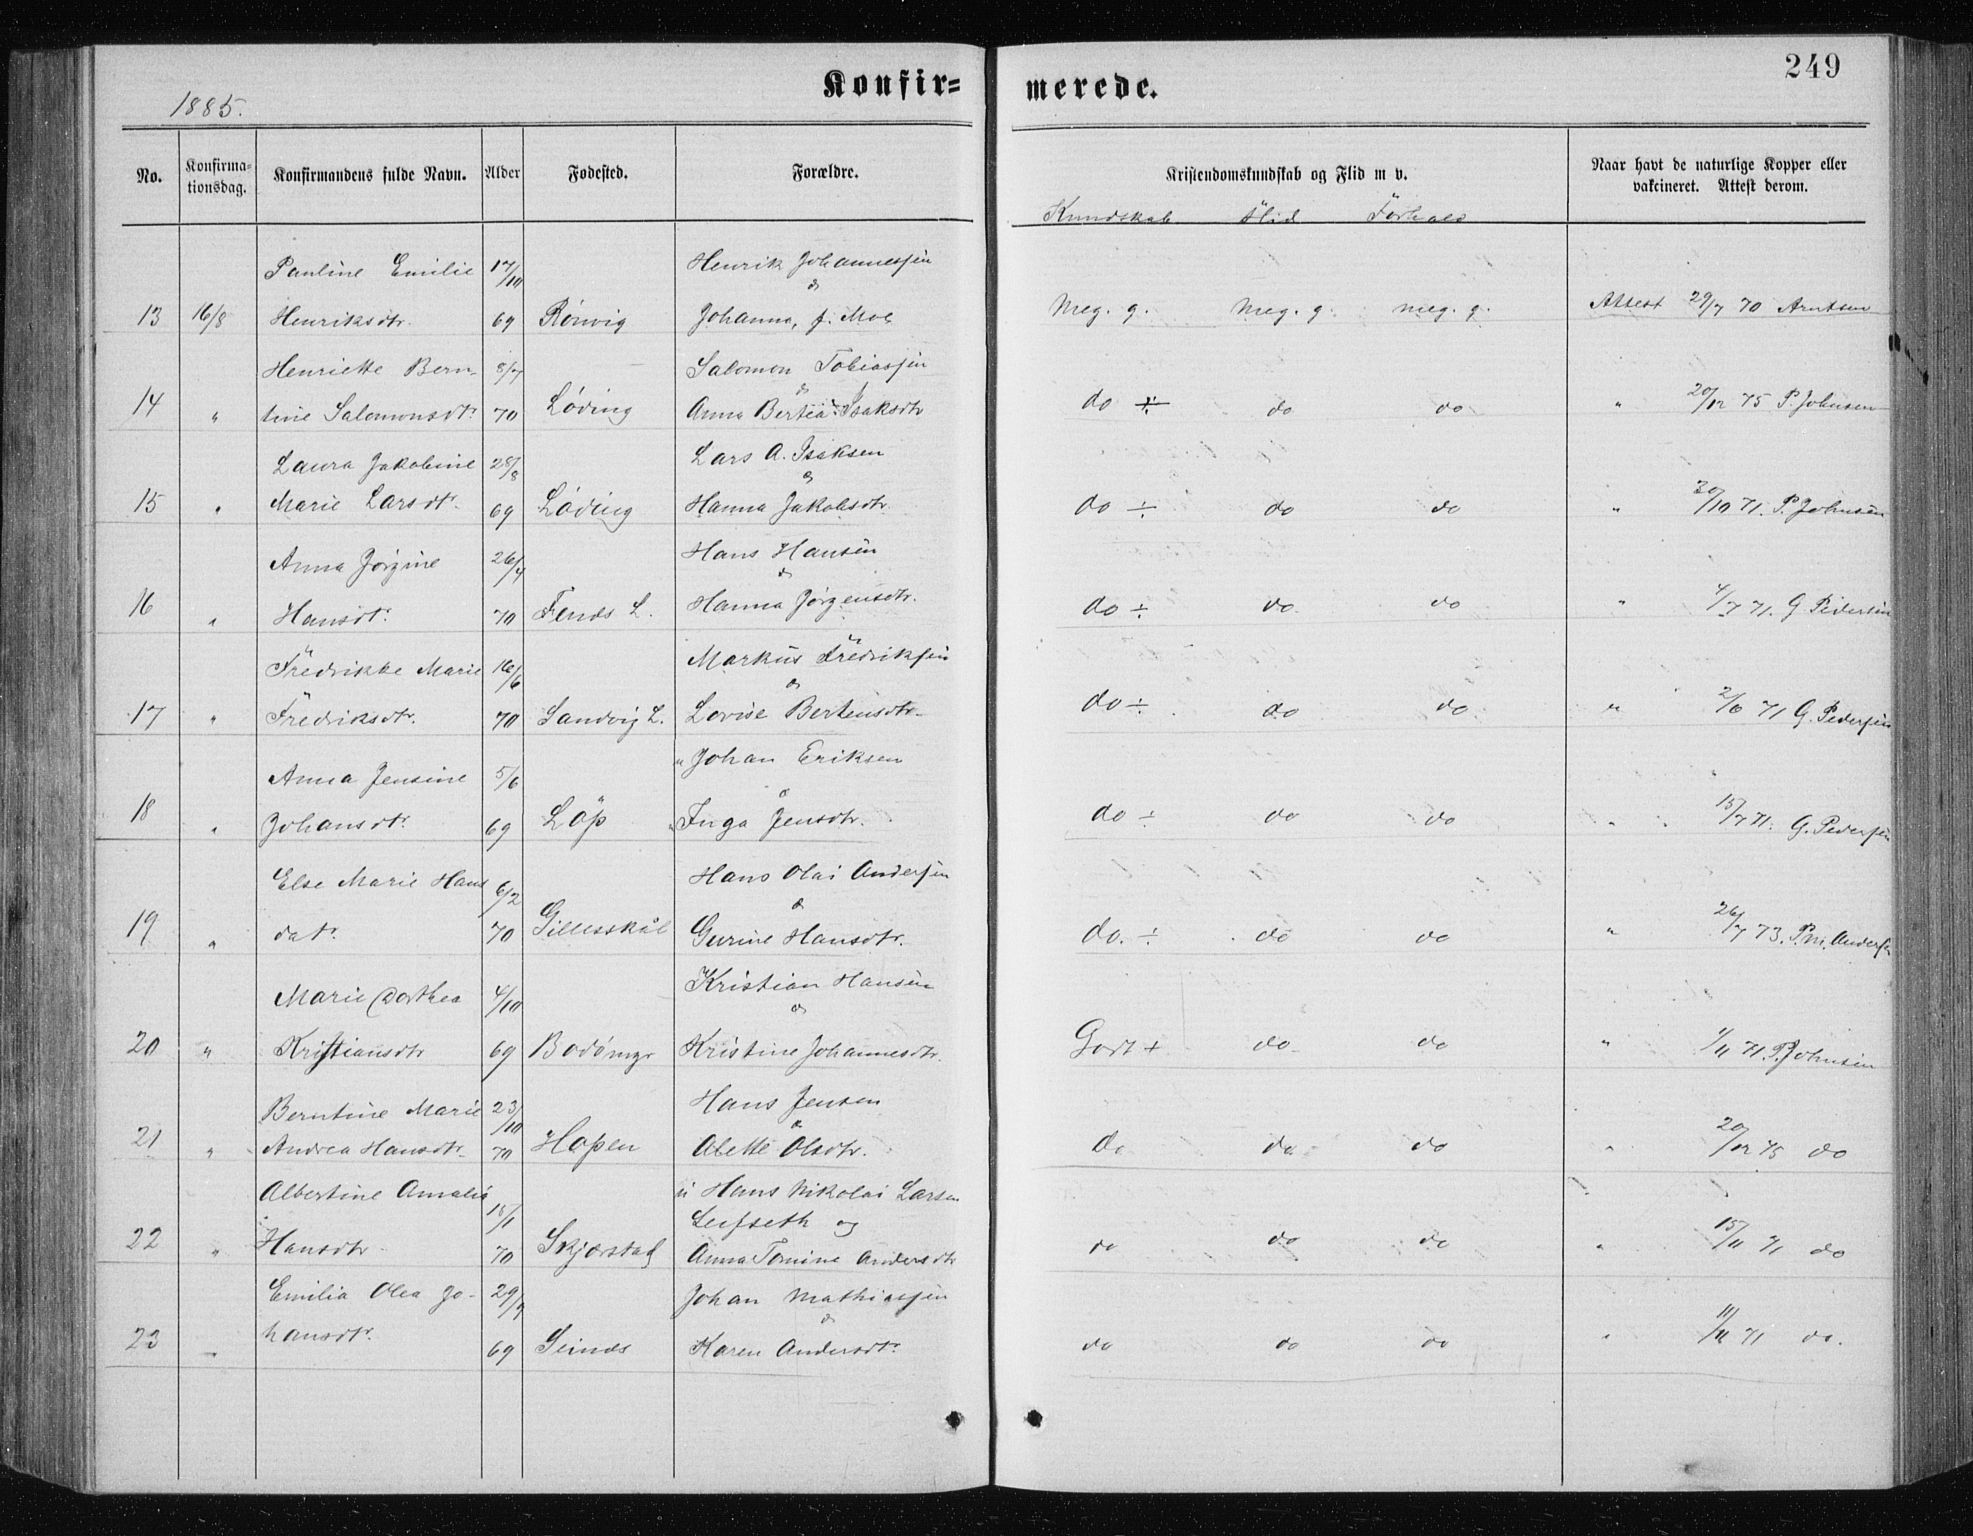 249
Konfir=
merede.
1885.
No.
Konfirma=
tionsdag.
Konfirmandens fulde Navn.
Alder
Fødested.
Forældre.
Kristendomskundskab og Flid m v.
Kundskab Flid Forhold
Naar havt de naturlige Kopper eller
vakcineret. Attest derom.
Pauline Emilie 17/10 Henrik Johannessen
&
13 16/8 Henriksdtr. 69 Rønvig Johanna, f. Moe Meg. g. Meg. g. meg. g. Attest 29/7 70 Arntsen
Henriette Bern- 8/7 Salomon Tobiassen
&
14 " tine Salomonsdtr. 70 Løding Anna Bertea Isaksdtr do ÷ do do " 20/12 75 P. Johnsen
Laura Jakobine 28/8 Lars A. Isaksen
&
15 " Marie Larsdtr. 69 Løding Hanna Jakobsdtr. do ÷ do do " 30/10 71. P. Johnsen
Anna Jørgine 26/4 Hans Hansen
&
16 " Hansdtr. 70 Fenes L. Hanna Jørgensdtr. do ÷ do do " 4/7 71. G Pedersen
Fredrikke Marie 16/6 Markus Fredriksen
&
17 " Fredriksdtr. 70 Sandvig L. Lovise Bertensdtr. do ÷ do do " 2/6 71 G. Pedersen
Anna Jensine 5/6 " Johan Eriksen
&
18 " Johansdtr. 69 Løp " Inga Jensdtr. do ÷ do do " 15/7 71. G. Pedersen
Else Marie Hans 6/2 Hans Olai Andersen
&
19 " datr. 70 Gillesskål Gurine Hansdtr. do. ÷ do do " 26/7 73. P.M. Andersen
Marie Dorthea 4/10 Kristian Hansen
&
20 " Kristiansdtr 69 Bodømyr Kristine Johannesdtr. Godt + do do " 1/11 71. P. Johnsen
Berntine Marie 23/10 Hans Jensen
&
21 " Andrea Hansdtr. 70 Hopen Alette Olsdtr. do do do " 20/12 75 do
Albertine Amalia 18/1 " Hans Nikolai Larsen
Leifseth og
22 " Hansdtr 70 Skjerstad Anna Tomine Andersdtr do do do " 15/11 71 do
Emilia Olea Jo- 29/9 Johan Mathiassen
&
23 " hansdtr. 69 Seines Karen Andersdtr. do do do " 11/11 71 do.